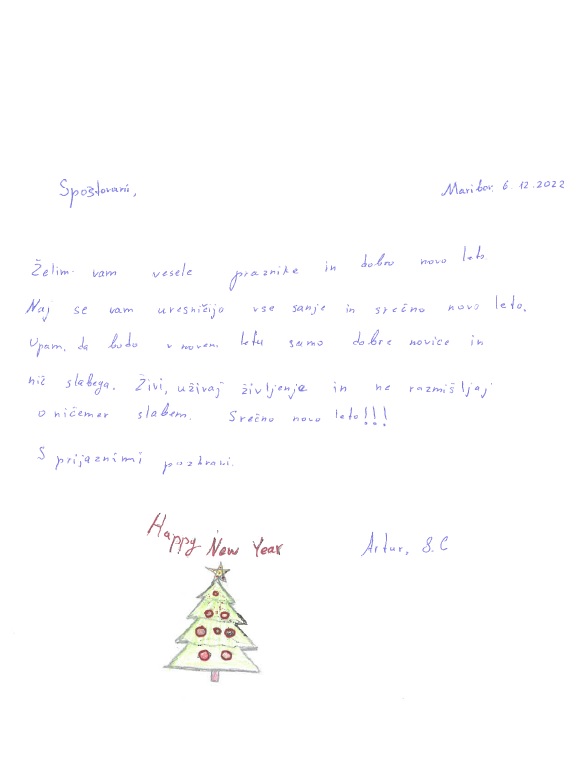 Spoštovani,
Maribor, 6.12.2022
Želim vam vesele praznike in dobro novo leto
Naj se vam uresničijo vse sanje in srečno novo leto.
Upam, da bodo v novem letu samo dobre novice in
nič slabega. Živi, uživaj življenje in ne razmišljaj
o ničemer slabem. Srečno novo leto!!!
S prijaznimi pozdravi.
Happy New Year
Artur, 8.C